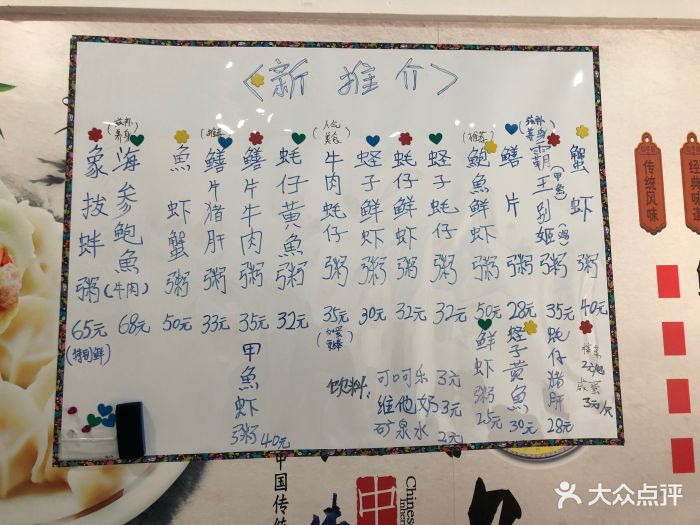 <新推介>
象拔蚌粥 65元 (特别鲜)
(滋补养身) 海参鲍魚(牛肉) 68元
魚虾蟹粥 50元
(推荐) 鳝片猪肝粥 33元
鳝片牛肉粥 35元
蚝仔黄魚粥 32元
(人气美食) 牛肉蚝仔粥 35元
蛏子鲜虾粥 30元
蚝仔鲜虾粥 32元
蛏子蚝仔粥 32元
(推荐) 鲍魚鲜虾粥 50元
鳝片粥 28元
(滋补养身) 霸王别姬(甲魚)(鸡)粥 35元
蟹虾粥 40元
甲魚虾粥 40元
饮料: 可口可乐 3元
维他奶 3元
矿泉水 2元
鲜虾粥 25元
蛏子黄魚 30元
蚝仔猪肝 28元
2元
咸蛋
3元/只
传统风味
经典
味
中国传统
中
Chinese
大众点评